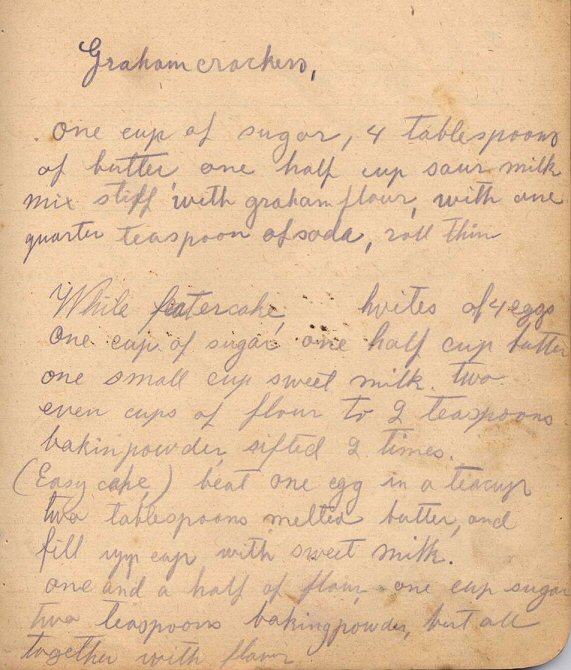 Graham crackers,
one cup of sugar, 4 tablespoons
of butter one half cup sour milk
mix stiff with graham flour, with one
quarter teaspoon of soda, roll thin
While featercake, hvites of 4 eggs
One cup of sugar one half cup butter
one small cup sweet milk. two
even cups of flour to 2 teaspoons
bakinpowder, sifted 2 times.
(Easy cake) beat one egg in a teacup
two tablespoons melted butter, and
fill upp cup with sweet milk.
one and a half of flour, one cup sugar
two teaspoons bakingpowder, beat all
together with flour